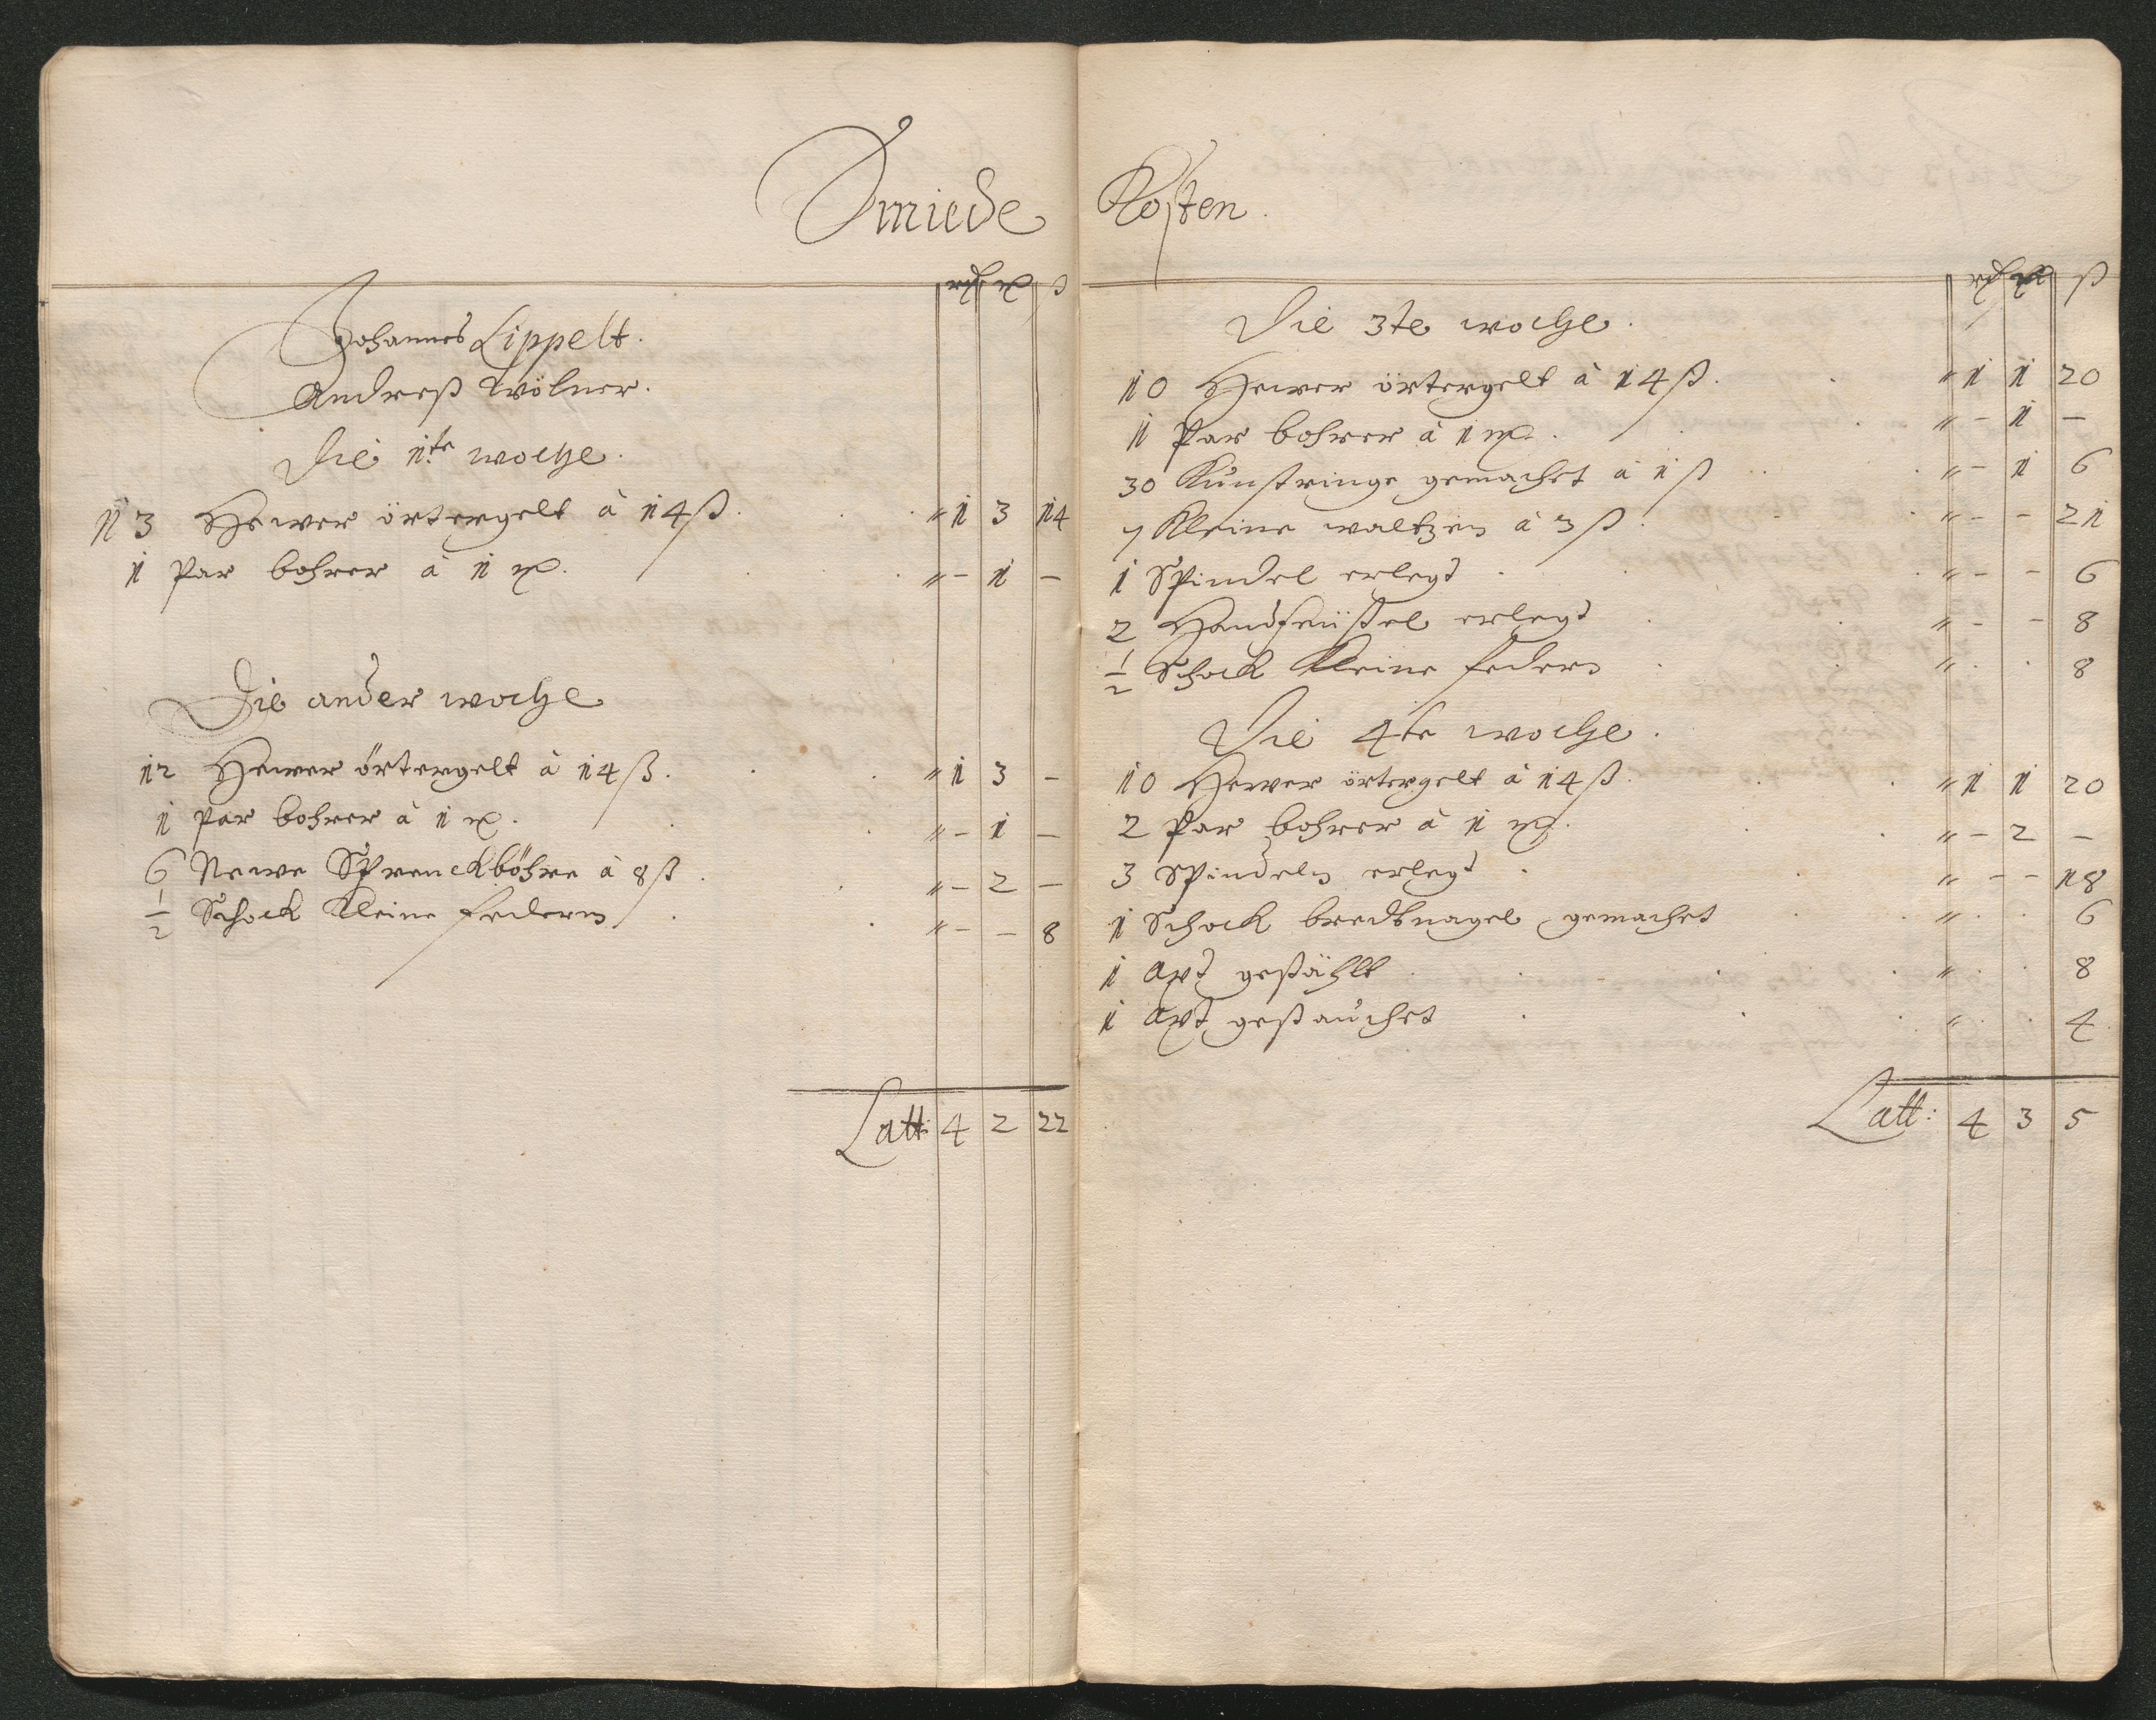 Smiede Kosten.
rth ort ß
Johannes Lippelt.
Andreß Wölner.
Die 1te woche.
13 Hewer örtergelt à 14 ß. " 1 3 14
1 Par bohrer à 1 ort. " - 1 -
Die ander woche
12 Hewer örtergelt à 14 ß. " 1 3 -
1 Par bohrer à 1 ort. " - 1 -
6 Newe Sprenckböhre à 8 ß. " - 2 -
1/2 Schock Kleine federn " - - 8
Latt: 4 2 22
rth ort ß
Die 3te woche.
10 Hewer örtergelt à 14 ß. " 1 1 20
1 Par bohrer à 1 ort. " - 1 -
30 Kunstringe gemachet à 1 ß " - 1 6
7 Kleine waltzen à 3 ß. " - - 21
1 Spindel erlegt " - - 6
2 Handfeüstel erlegt " - - 8
1/2 Schock Kleine federn " . . 8
Die 4te woche.
10 Hewer örtergelt à 14 ß. " 1 1 20
2 Par bohrer à 1 ort. " - 2 -
3 Spindeln erlegt " - - 18
1 Schock bredtnagel gemachet " . . 6
1 axt gestählt " . . 8
1 axt gestauchet " . . 4
Latt: 4 3 5